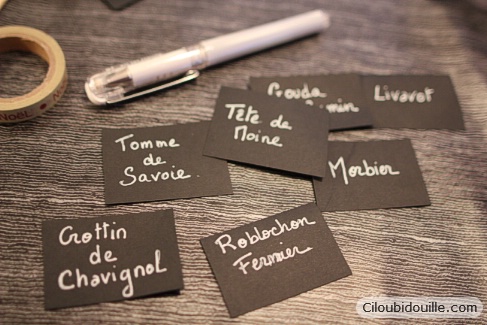 Noël
Gouda
Cumin
Livarot
Tête de
Moine
Tomme
de
Savoie
Morbier
Crottin
de
Chavignol
Roblochon
Fermier
Ciloubidouille.com